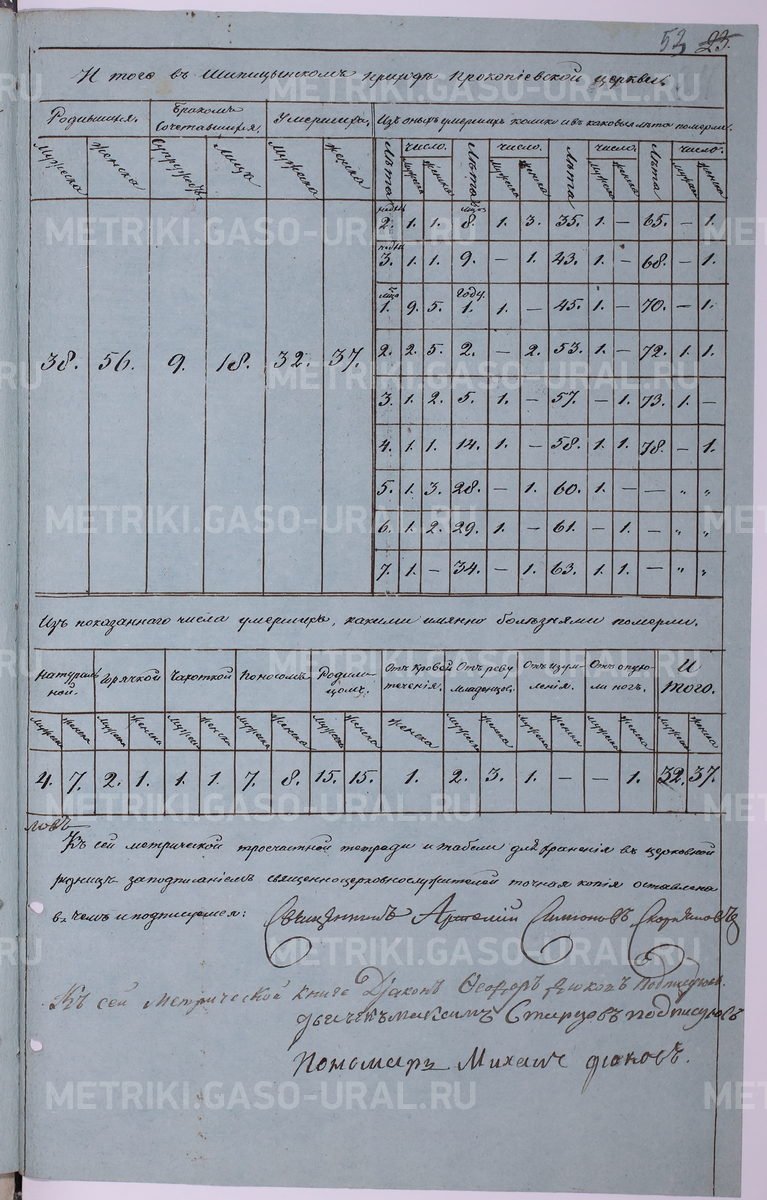 52 23.
Итого въ Шипицынскомъ приходѣ Прокопіевской церкви.
Родившихся. Бракомъ сочетавшихся. Умершихъ. Изъ оныхъ умершихъ колико и въ каковыя лѣта померли.
Мужеска Женска Супружествъ Лица Мужеска Женска Лѣта число. Мужеска Женска Лѣта число. Мужеска Женска Лѣта число. Мужеска Женска Лѣта число. Мужеска Женска
38. 56. 9. 18. 32. 37.
2. 1. 1. 8. 1. 3. 35. 1. – 65. – 1.
3. 1. 1. 9. – 1. 43. 1. – 68. – 1.
1. 9. 5. Году. 1. 1. – 45. 1. – 70. – 1.
2. 2. 5. 2. – 2. 53. 1. – 72. 1. 1.
3. 1. 2. 5. 1. – 57. – 1. 73. 1. –
4. 1. 1. 14. 1. – 58. 1. 1. 78. – 1.
5. 1. 3. 28. – 1. 60. 1. – – „ „
6. 1. 2. 29. 1. – 61. – 1. – „ „
7. 1. – 34. – 1. 63. 1. 1. – „ „
Изъ показаннаго числа умершихъ, какими имянно болѣзнями померли.
Натуральной. Горячкой Чахоткой Поносомъ. Родимцомъ. Отъ кровотеченія. Отъ реву младенцовъ. Отъ изумленія. Отъ опухоли ногъ. Итого.
Мужеска Женска Мужеска Женска Мужеска Женска Мужеска Женска Мужеска Женска Женска Мужеска Женска Мужеска Женска Мужеска Женска Мужеска Женска
4. 7. 2. 1. 1. 1. 7. 8. 15. 15. 1. 2. 3. 1. – – 1. 32. 37.
ловъ
Къ сей метрической тросчастной тетради и табели для храненія въ церковной
ризницѣ за подписаніемъ священноцерковнослужителей точная копія оставлена
въ чемъ и подписуемся: Священникъ Артемій Симоновъ
Къ сей метрической книге Диаконъ Ѳеодоръ подписуюсь.
дьячекъ максимъ Старцовъ подписуюсь
Пономарь Михаилъ
METRIKI.GASO-URAL.RU